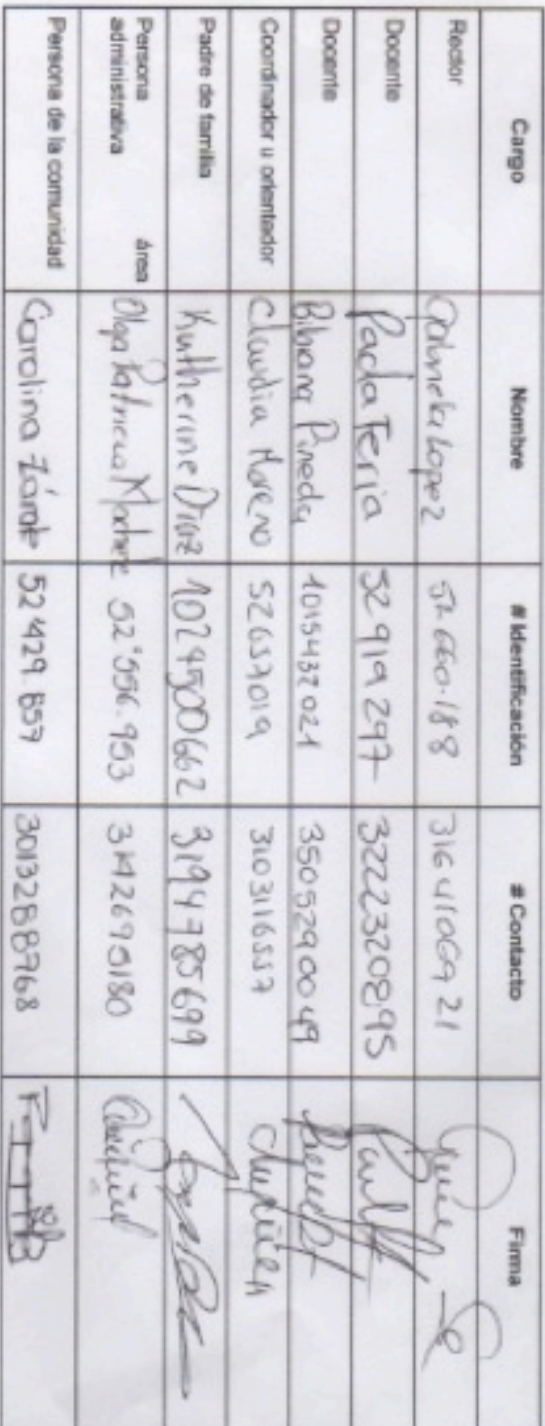 Cargo Nombre # Identificación # Contacto Firma
Rector Gabriela Lopez 52.660.188 3164106921
Docente Paola Feria 52919297 3222320895
Docente Bibiana Pineda 1015432021 3505290049
Coordinador u orientador Claudia Moreno 52657019 3103116557
Padre de familia Kutherine Diaz 1024500662 3194785699
Persona área Olga Patricia 52'556.953 3142695180
administrativa
Persona de la comunidad Carolina Zárate 52'429.857 3013288768